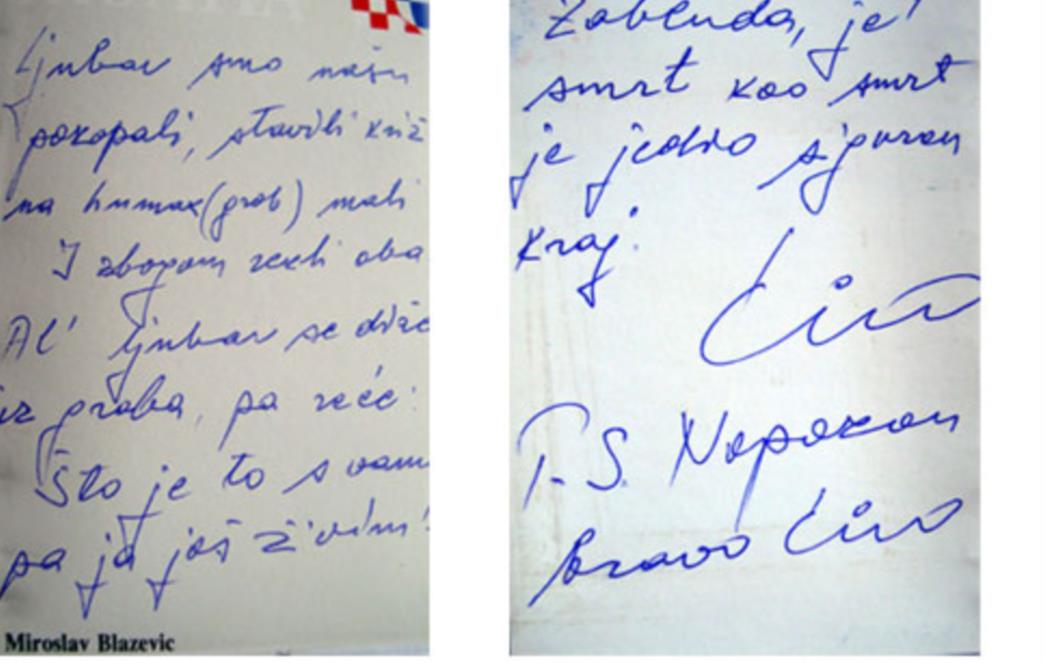 Ljubav smo našu
pokopali, stavili križ
na humak (grob) mali
I zbogom rekli oba
Al' ljubav se diže
iz groba, pa reče:
Što je to s vam
pa ja još živim!
Miroslav Blazevic
Zabluda, je!
smrt kao smrt
je jedno siguran
kraj.
Ćiro
P.S. Nepokon
bravo Ćiro